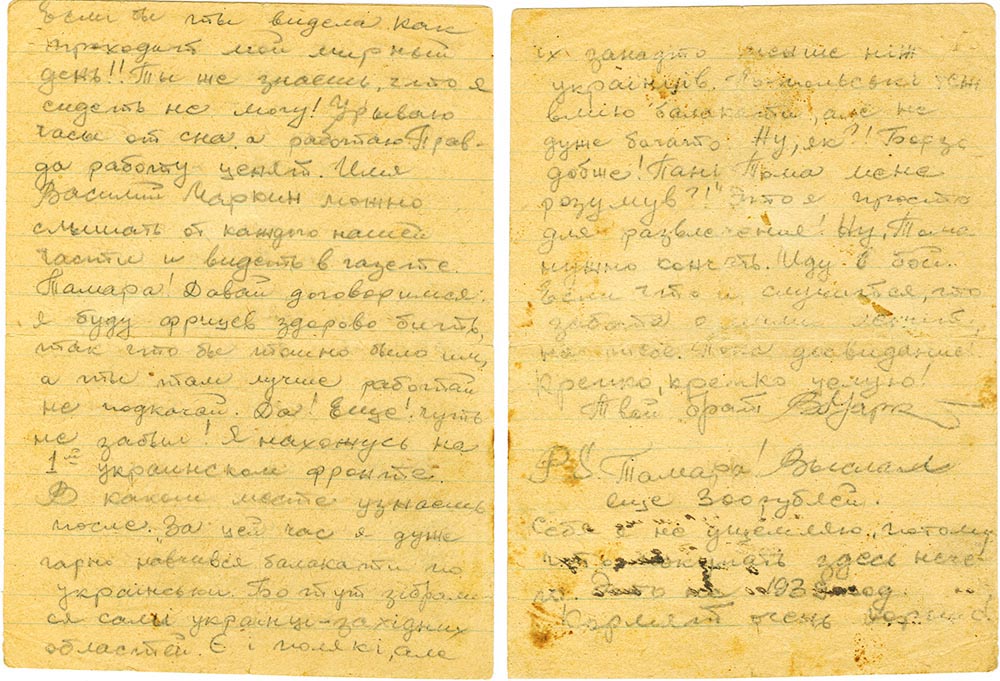 Если бы ты видела как
проходит мой мирный
день!! Ты же знаешь, что я
сидеть не могу! Урываю
часы от сна, а работаю. Прав-
да работу ценят. Имя
Василий Маркин можно
слышать от каждого нашей
части и видеть в газете.
Тамара! Давай договоримся:
я буду фрицев здорово бить,
так что бы тошно было им,
а ты там лучше работай
не подкачай. Да! Еще! Чуть
не забыл! Я нахожусь на
1ом украинском фронте.
В каком месте узнаешь
после. "За цей час я дуже
гарно навчився балакати по
українськи. Бо тут зібрали-
ся самі українці-західних
областей. Є і полякі, але
їх занадто меньше ніж
українців. По польські теж
вмію балакати, але не
дуже богато. Ну, як?! Барзо
добше! Пані Тома мене
розумув?!" Это я просто
для развлечения! Ну, Тома
нужно кончать. Иду в бой.
Если что и случится, что
забота о маме лежит
на тебе. Пока досвидание!
Крепко, крепко целую!
Твой брат ВМарк
P.S. Тамара! Выслал
еще 300 рублей.
Себя я не ущемляю, потому
что покупать здесь нече-
го. Это на 193 год.
Кормят очень хорошо.